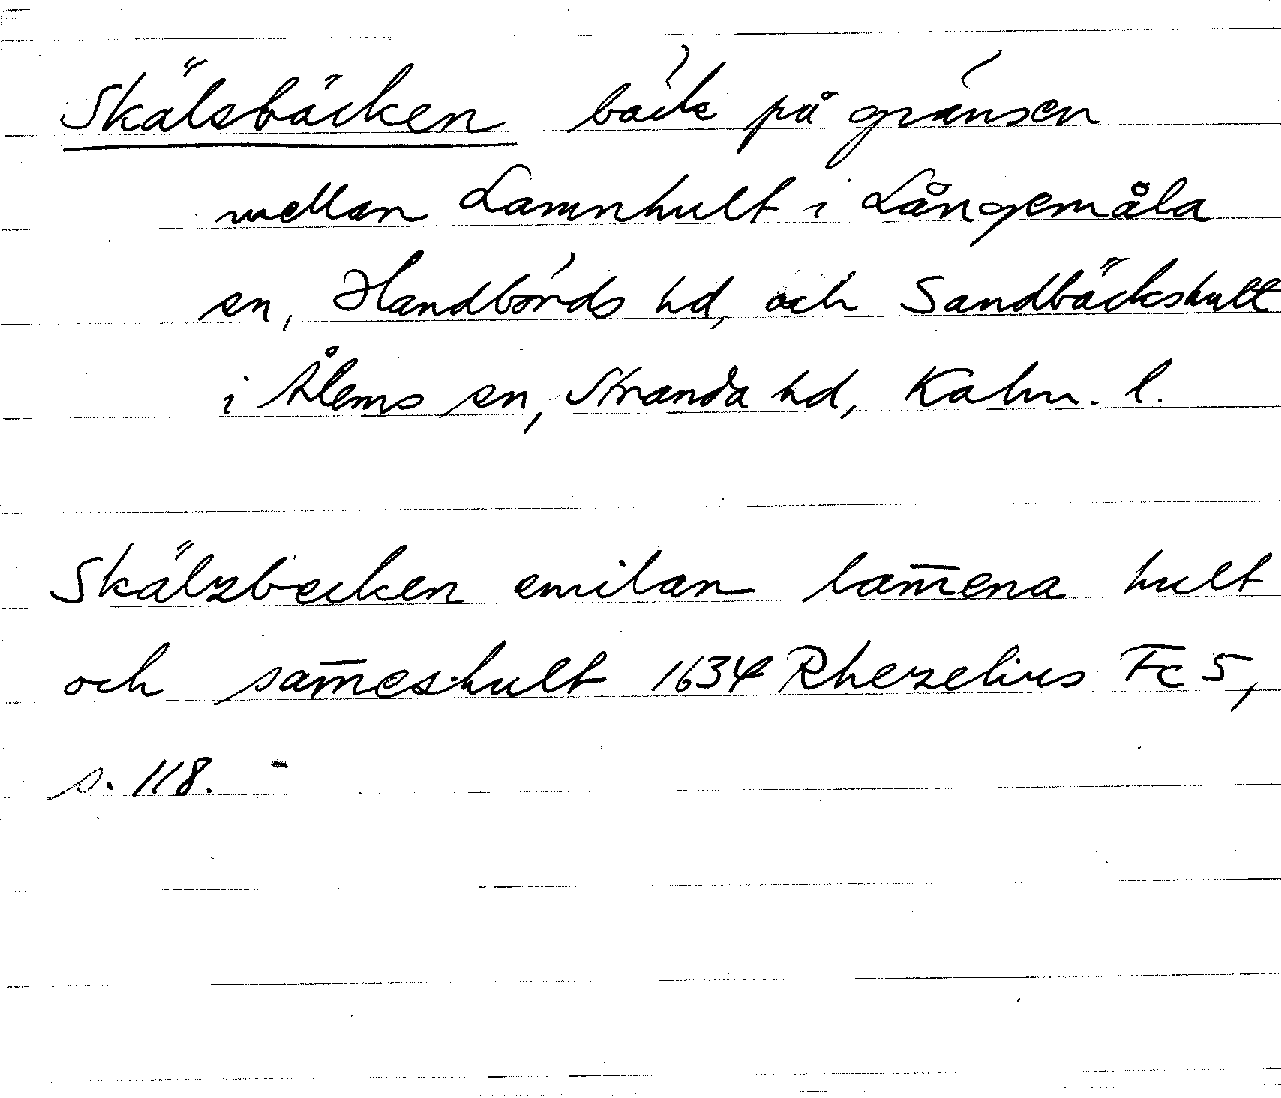 Skälsbäcken bäck på gränsen
mellan Lamnhult i Långemåla
sn, Handbörds hd, och Sandbäckshult
i Ålems sn, Stranda hd, Kalm. l.
Skälzbecken emilan lam̄ena hult
och sam̄eshult 1634 Rhezelius Fc 5,
s. 118. -